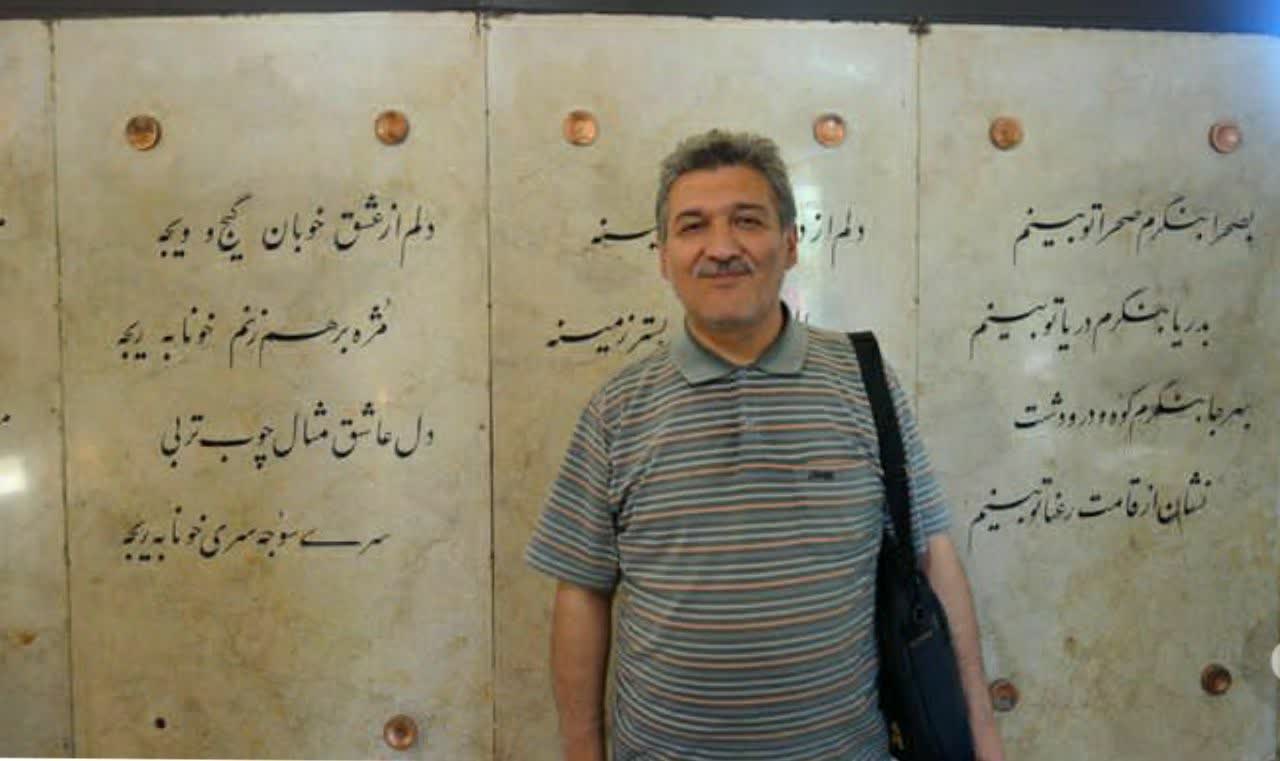 بصحرا بنگرم صحرا تو بینم
بدریا بنگرم دریا تو بینم
بهر جا بنگرم کوه و در و دشت
نشان از قامت رعنا تو بینم
دلم از
بسترزمینه
دلم از عشق خوبان گیج و ویجه
مژه برهم زنم خونابه ریجه
دل عاشق مثال چوب تر بی
سرے سوجه سری خونابه ریجه